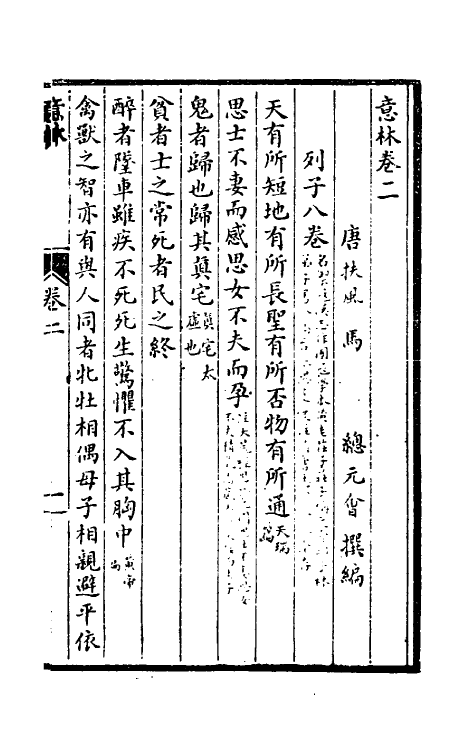 意林卷二
唐扶風馬 總元會撰編
列子八卷
天有所短地有所長聖有所否物有所通天瑞篇
思士不妻而感思女不夫而孕
鬼者歸也歸其真宅真宅太虛也
貧者士之常死者民之終
醉者墜車雖疾不死死生驚懼不入其胸中黃帝
禽獸之智亦有與人同者牝牡相偶母子相親避平依
意林
卷二
一